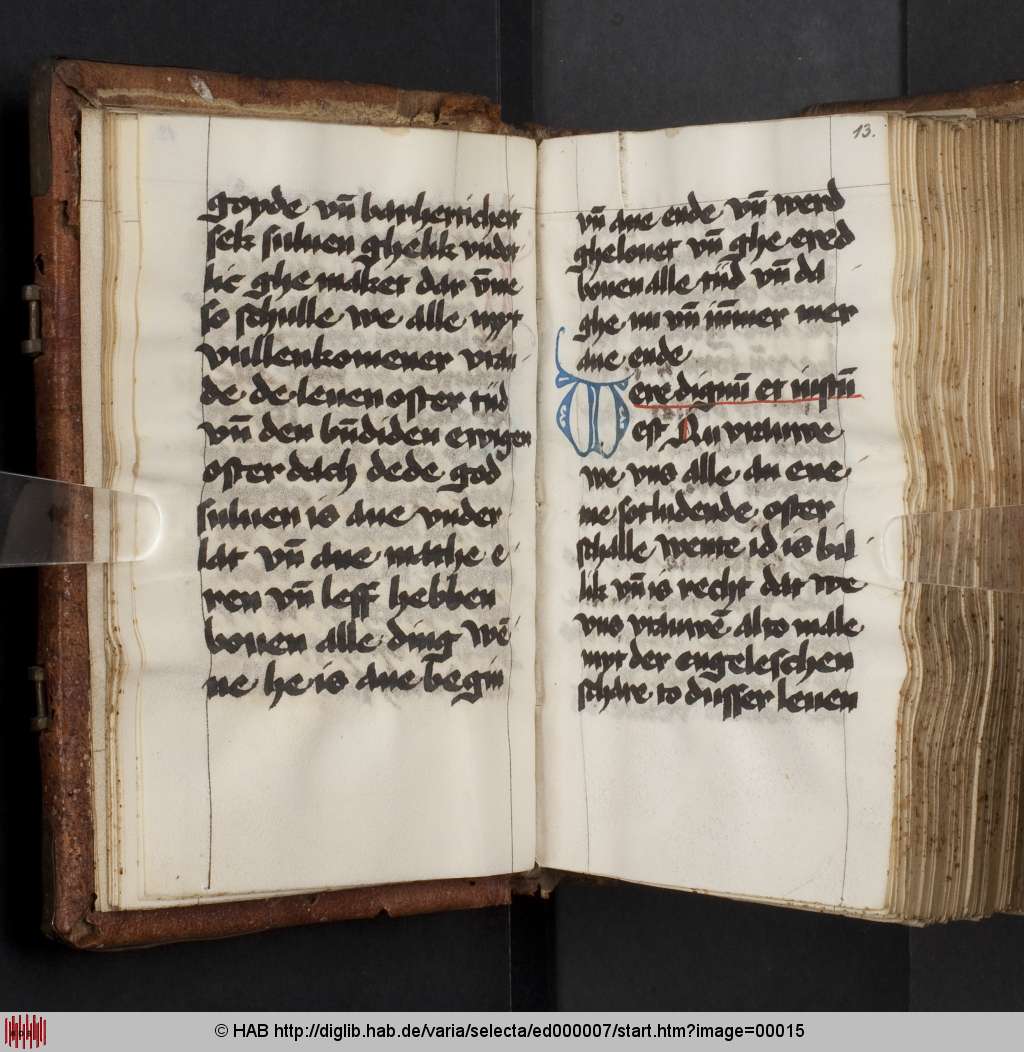 goyde vn̄ barherticheit
sek suluen ghelik vnder
lic ghe maket dar v̄me
so schulle we alle myt
vullenkomener vrau
de de leuen oster tijd
vn̄ den bn̄diden ewigen
oster dach dede god
suluen is ane vnder
lat vn̄ ane mathe e
ren vn̄ leff hebben
bouen alle ding wē
ne he is ane begin
13.
vn̄ ane ende vn̄ werd
ghelouet vn̄ ghe ered
bouen alle tijd vn̄ da
ghe nu vn̄ im̄mer mer
ane ende
Vere dignū et iustū
est Nu vrauwe
we vns alle an ene
me sorludende oster
schalle wente id is bil
lik vn̄ is recht dat we
vns vrauwē al to male
myt der engeleschen
schare to dusser leuen
© HAB http://diglib.hab.de/varia/selecta/ed000007/start.htm?image=00015